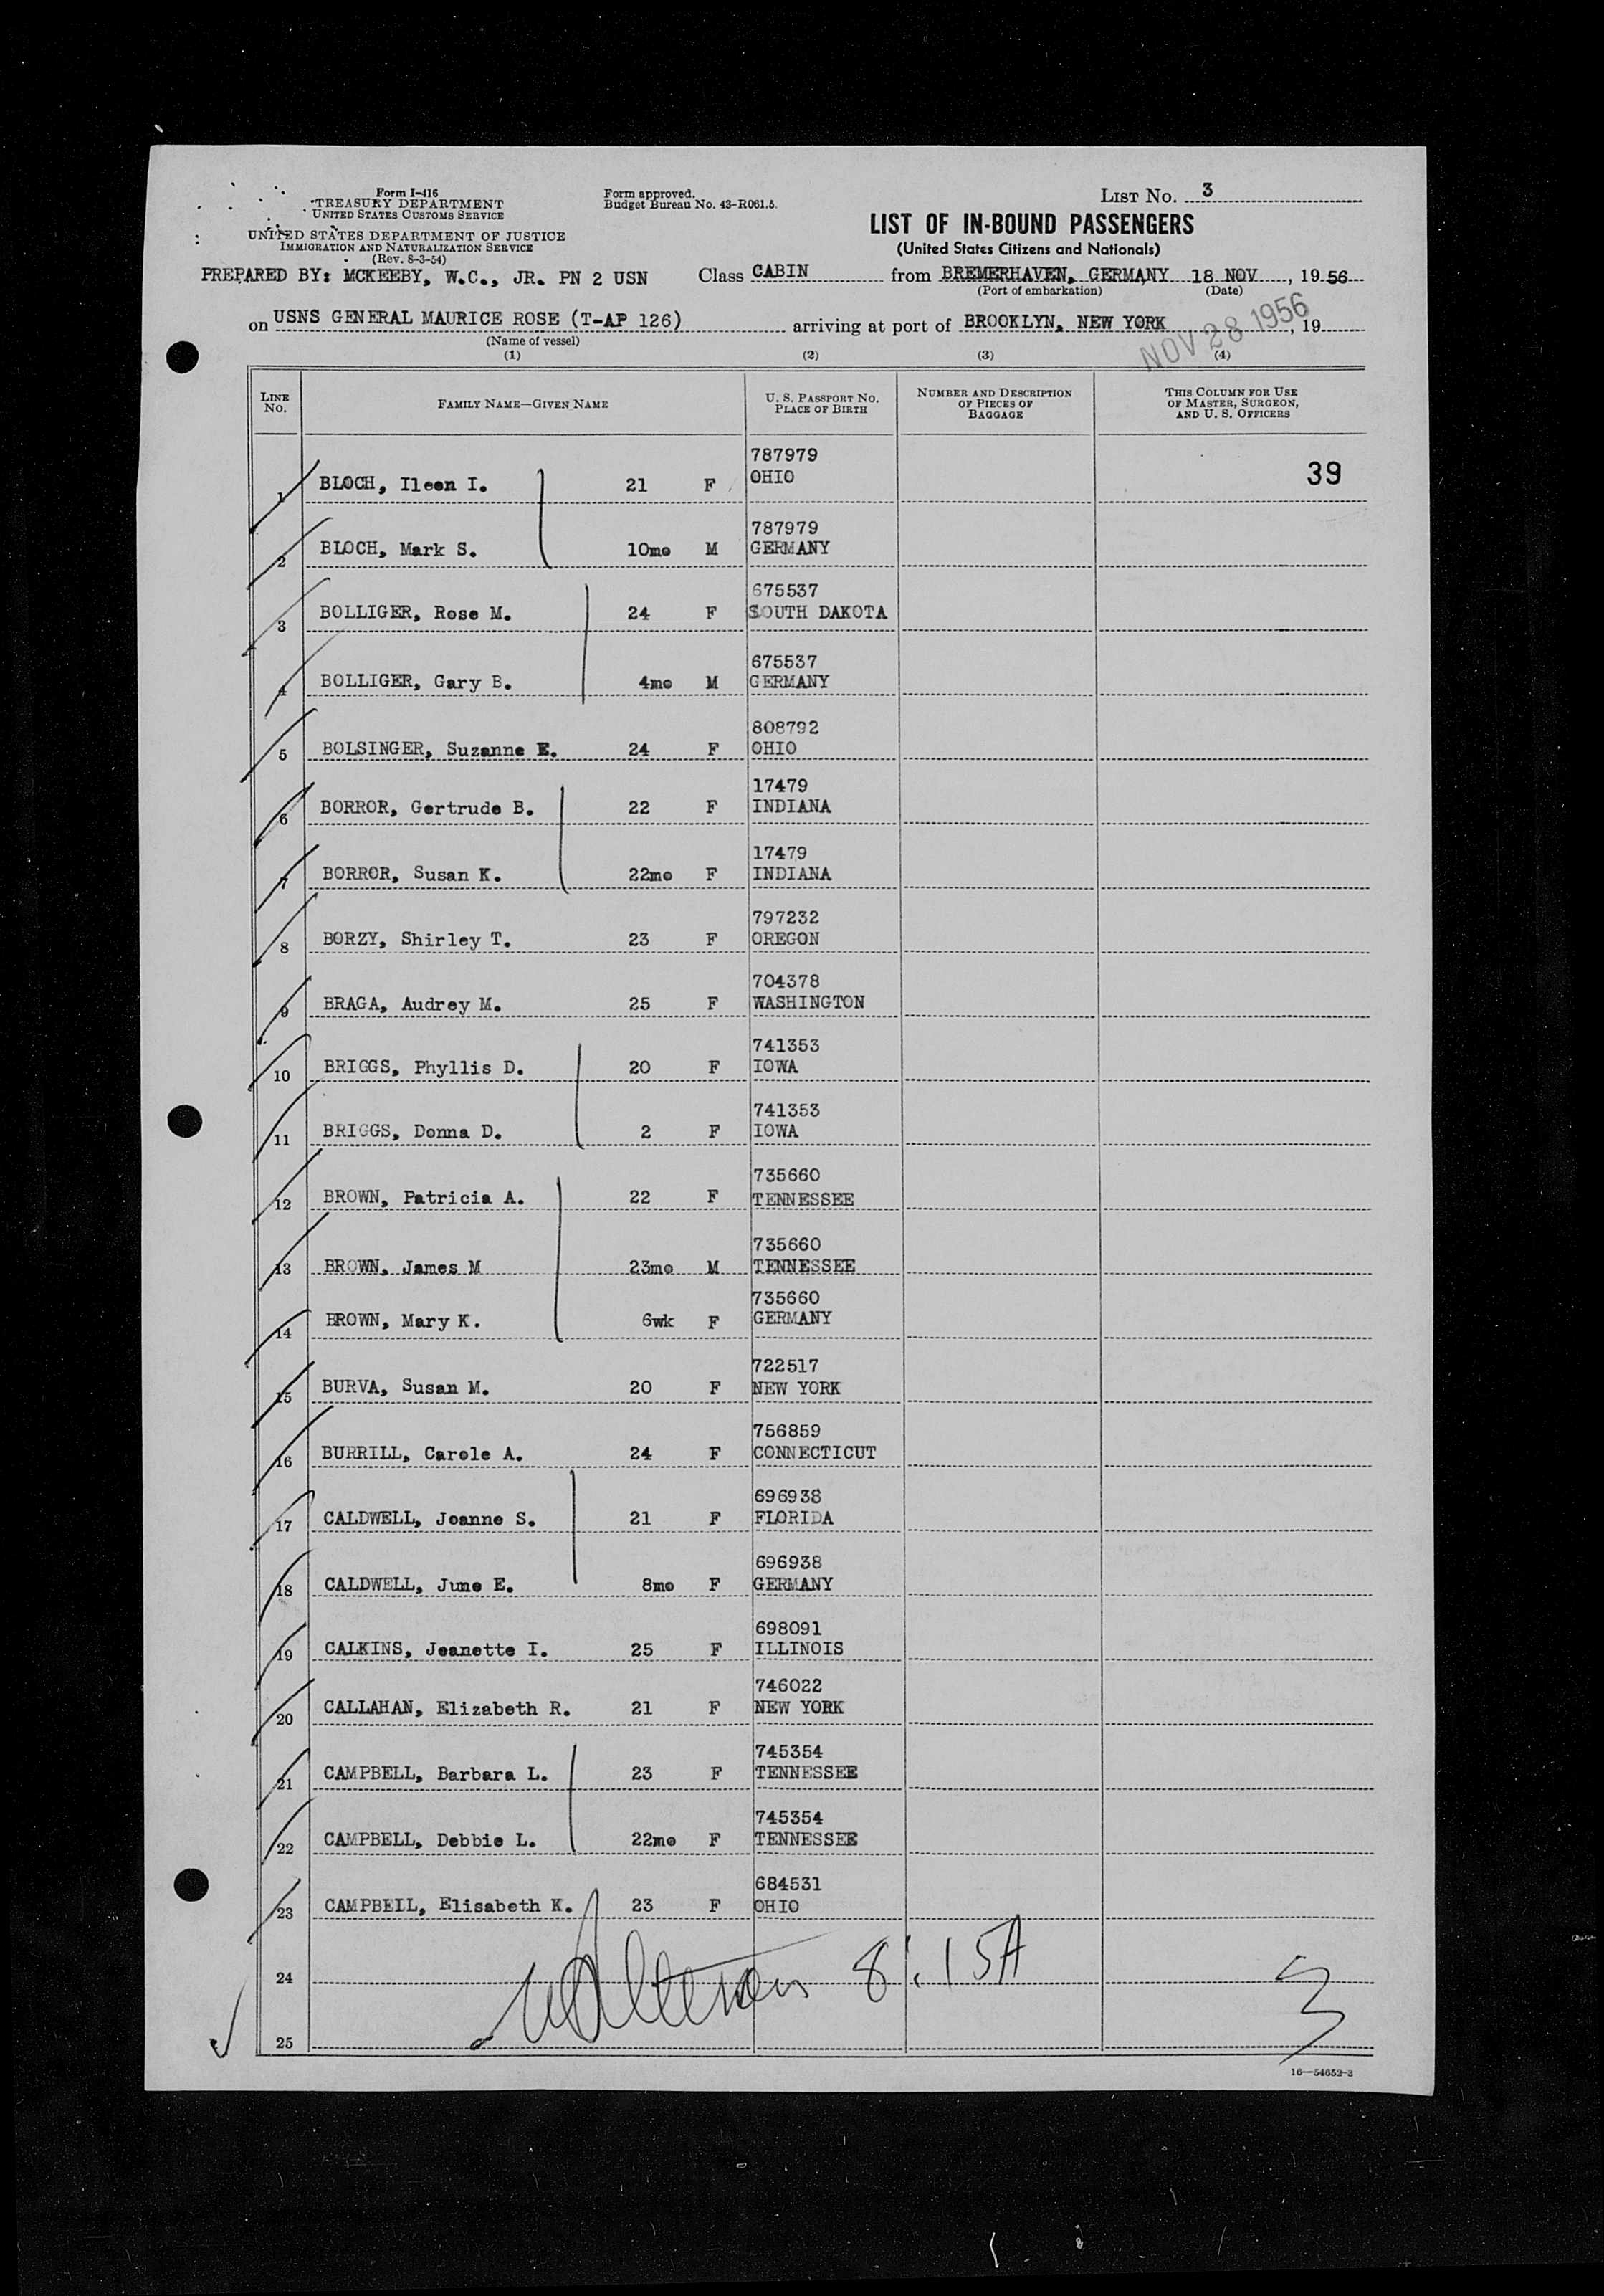 Form I-416
TREASURY DEPARTMENT
UNITED STATES CUSTOMS SERVICE
UNITED STATES DEPARTMENT OF JUSTICE
IMMIGRATION AND NATURALIZATION SERVICE
(Rev. 8-3-54)
Form approved.
Budget Bureau No. 43-R061.5.
LIST NO. 3
LIST OF IN-BOUND PASSENGERS
(United States Citizens and Nationals)
PREPARED BY: MCKEEBY, W.C., JR. PN 2 USN Class CABIN from BREMERHAVEN, GERMANY 18 NOV, 19 56
(Port of embarkation) (Date)
on USNS GENERAL MAURICE ROSE (T-AP 126) arriving at port of BROOKLYN, NEW YORK, 19
NOV 28 1956
(Name of vessel)
(1) (2) (3) (4)
LINE NO. FAMILY NAME—GIVEN NAME U. S. PASSPORT NO. PLACE OF BIRTH NUMBER AND DESCRIPTION OF PIECES OF BAGGAGE THIS COLUMN FOR USE OF MASTER, SURGEON, AND U. S. OFFICERS
787979
1 BLOCH, Ileen I. 21 F OHIO 39
787979
2 BLOCH, Mark S. 10mo M GERMANY
675537
3 BOLLIGER, Rose M. 24 F SOUTH DAKOTA
675537
4 BOLLIGER, Gary B. 4mo M GERMANY
808792
5 BOLSINGER, Suzanne E. 24 F OHIO
17479
6 BORROR, Gertrude B. 22 F INDIANA
17479
7 BORROR, Susan K. 22mo F INDIANA
797232
8 BORZY, Shirley T. 23 F OREGON
704378
9 BRAGA, Audrey M. 25 F WASHINGTON
741353
10 BRIGGS, Phyllis D. 20 F IOWA
741353
11 BRIGGS, Donna D. 2 F IOWA
735660
12 BROWN, Patricia A. 22 F TENNESSEE
735660
13 BROWN, James M 23mo M TENNESSEE
735660
14 BROWN, Mary K. 6wk F GERMANY
722517
15 BURVA, Susan M. 20 F NEW YORK
756859
16 BURRILL, Carole A. 24 F CONNECTICUT
696938
17 CALDWELL, Joanne S. 21 F FLORIDA
696938
18 CALDWELL, June E. 8mo F GERMANY
698091
19 CALKINS, Jeanette I. 25 F ILLINOIS
746022
20 CALLAHAN, Elizabeth R. 21 F NEW YORK
745354
21 CAMPBELL, Barbara L. 23 F TENNESSEE
745354
22 CAMPBELL, Debbie L. 22mo F TENNESSEE
684531
23 CAMPBELL, Elisabeth K. 23 F OHIO
8:15A
24
3
25
16—54652-3